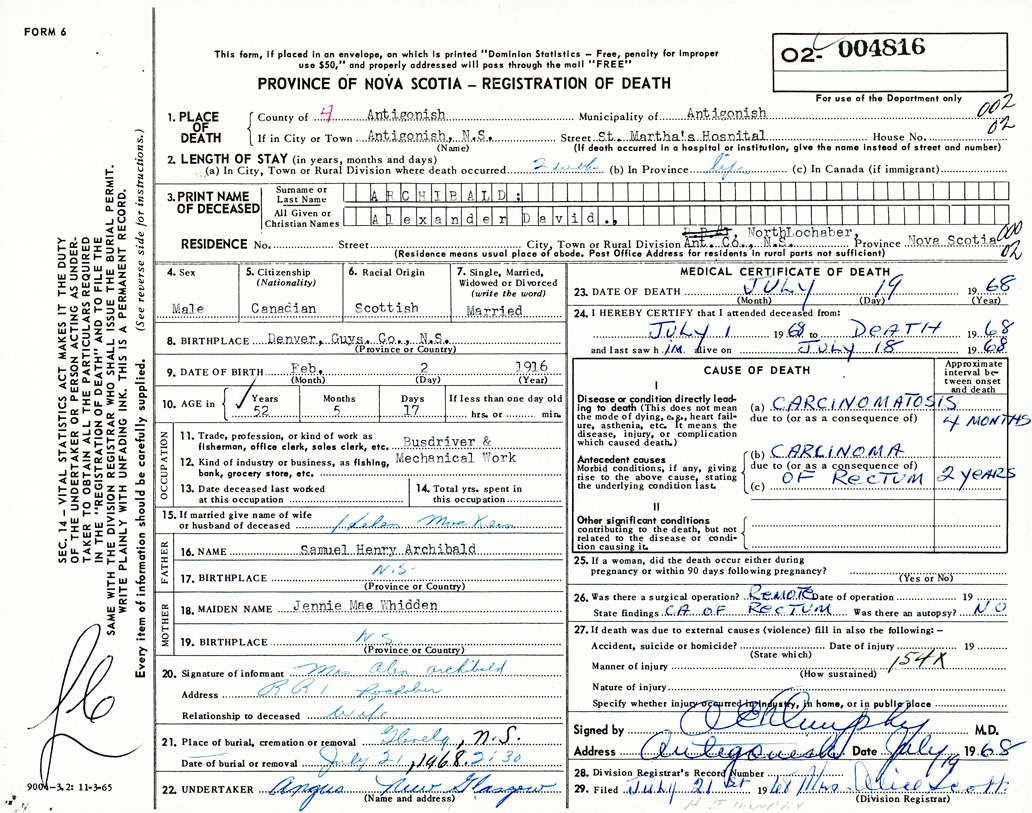 FORM 6
This form, if placed in an envelope, on which is printed "Dominion Statistics – Free, penalty for improper
use $50," and properly addressed will pass through the mail "FREE"
PROVINCE OF NOVA SCOTIA – REGISTRATION OF DEATH
02- 004816
For use of the Department only
002
02
1. PLACE OF DEATH
County of 4 Antigonish Municipality of Antigonish
If in City or Town Antigonish, N.S. Street St. Martha's Hospital House No.
(Name) (If death occurred in a hospital or institution, give the name instead of street and number)
2. LENGTH OF STAY (in years, months and days)
(a) In City, Town or Rural Division where death occurred 2 wks (b) In Province life (c) In Canada (if immigrant)
3. PRINT NAME OF DECEASED
Surname or Last Name ARCHIBALD:
All Given or Christian Names Alexander David.,
RESIDENCE No. Street City, Town or Rural Division Ant. Co., N.S. NorthLochaber, Province Nova Scotia
000
02
(Residence means usual place of abode. Post Office Address for residents in rural parts not sufficient)
4. Sex
Male
5. Citizenship
(Nationality)
Canadian
6. Racial Origin
Scottish
7. Single, Married,
Widowed or Divorced
(write the word)
Married
8. BIRTHPLACE Denver, Guys. Co., N.S.
(Province or Country)
9. DATE OF BIRTH Feb. 2 1916
(Month) (Day) (Year)
10. AGE in Years Months Days If less than one day old
52 5 17 hrs. or min.
OCCUPATION
11. Trade, profession, or kind of work as
fisherman, office clerk, sales clerk, etc. Busdriver &
12. Kind of industry or business, as fishing, Mechanical Work
bank, grocery store, etc.
13. Date deceased last worked
at this occupation
14. Total yrs. spent in
this occupation
15. If married give name of wife
or husband of deceased Helen MacKeen
FATHER
16. NAME Samuel Henry Archibald
17. BIRTHPLACE N.S.
(Province or Country)
MOTHER
18. MAIDEN NAME Jennie Mae Whidden
19. BIRTHPLACE N.S.
(Province or Country)
20. Signature of informant Mrs Alex Archibald
Address R R 1 Lochaber
Relationship to deceased Wife
21. Place of burial, cremation or removal Glenelg, N.S.
Date of burial or removal July 21, 1968. 2:30
22. UNDERTAKER Angus New Glasgow
(Name and address)
MEDICAL CERTIFICATE OF DEATH
23. DATE OF DEATH JULY 19 1968
(Month) (Day) (Year)
24. I HEREBY CERTIFY that I attended deceased from:
JULY 1 1968 to DEATH 1968
and last saw h IM alive on JULY 18 1968
CAUSE OF DEATH
Approximate
interval be-
tween onset
and death
I
Disease or condition directly lead-
ing to death (This does not mean
the mode of dying, e.g., heart fail-
ure, asthenia, etc. It means the
disease, injury, or complication
which caused death.)
(a) CARCINOMATOSIS
due to (or as a consequence of)
4 MONTHS
Antecedent causes
Morbid conditions, if any, giving
rise to the above cause, stating
the underlying condition last.
(b) CARCINOMA
due to (or as a consequence of)
(c) OF RECTUM 2 YEARS
II
Other significant conditions
contributing to the death, but not
related to the disease or condi-
tion causing it.
25. If a woman, did the death occur either during
pregnancy or within 90 days following pregnancy?
(Yes or No)
26. Was there a surgical operation? REMOTE Date of operation 19
State findings CA OF RECTUM Was there an autopsy? NO
27. If death was due to external causes (violence) fill in also the following: –
Accident, suicide or homicide? Date of injury 19
(State which)
154X
Manner of injury
(How sustained)
Nature of injury
Specify whether injury occurred in industry, in home, or in public place
Signed by M.D.
Address Antigonish Date July 19 1968
28. Division Registrar's Record Number
29. Filed July 21st 1968 Mrs. Alice Scott
(Division Registrar)
SEC. 14 – VITAL STATISTICS ACT MAKES IT THE DUTY
OF THE UNDERTAKER OR PERSON ACTING AS UNDER-
TAKER TO OBTAIN ALL THE PARTICULARS REQUIRED
IN THE "REGISTRATION OF DEATH" AND TO FILE THE
SAME WITH THE DIVISION REGISTRAR WHO SHALL ISSUE THE BURIAL PERMIT.
WRITE PLAINLY WITH UNFADING INK. THIS IS A PERMANENT RECORD.
Every item of information should be carefully supplied. (See reverse side for instructions.)
900M-3.2: 11-3-65